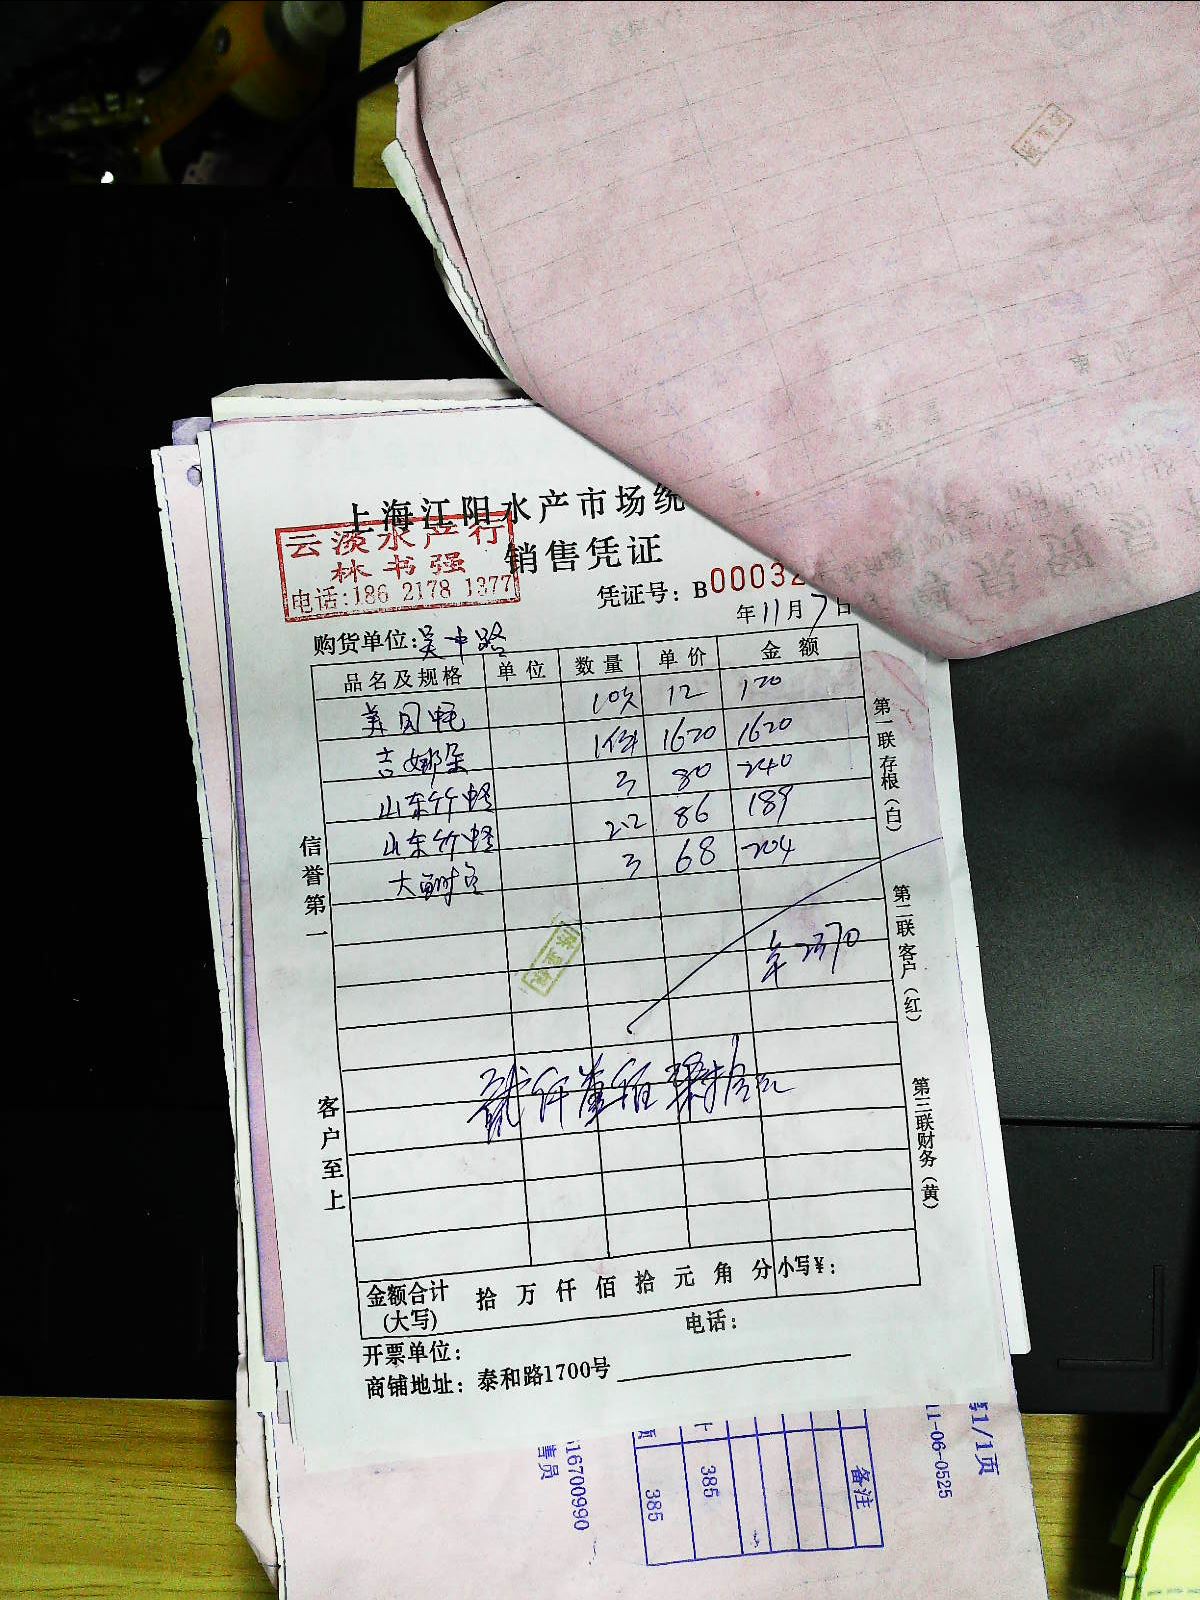 上海江阳水产市场统
销售凭证
云淡水产行
林书强
电话:186 2178 1377
凭证号：B00032
年11月7日
购货单位:吴中路
品名及规格 单位 数量 单价 金额
美国蚝 10只 12 120
吉娜朵 1件 1620 1620
山东竹蛏 3 80 240
山东竹蛏 2.2 86 189
大鲥鱼 3 68 204
2370
信誉第一
客户至上
第一联存根(白)
第二联客户(红)
第三联财务(黄)
金额合计(大写) 拾 万 仟 佰 拾 元 角 分 小写¥：
开票单位： 电话：
商铺地址：泰和路1700号
1/1页
11-06-0525
备注
385
385
16700990
售员